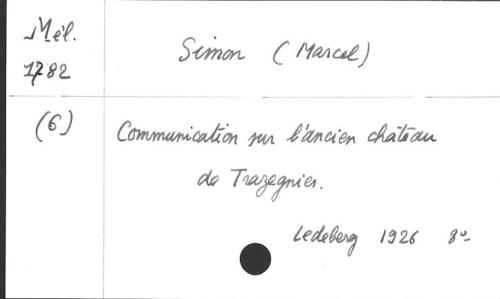 Mél.
1782
Simon (Marcel)
(6)
Communication sur l'ancien château
de Trazegnies.
Ledeberg 1926 8º